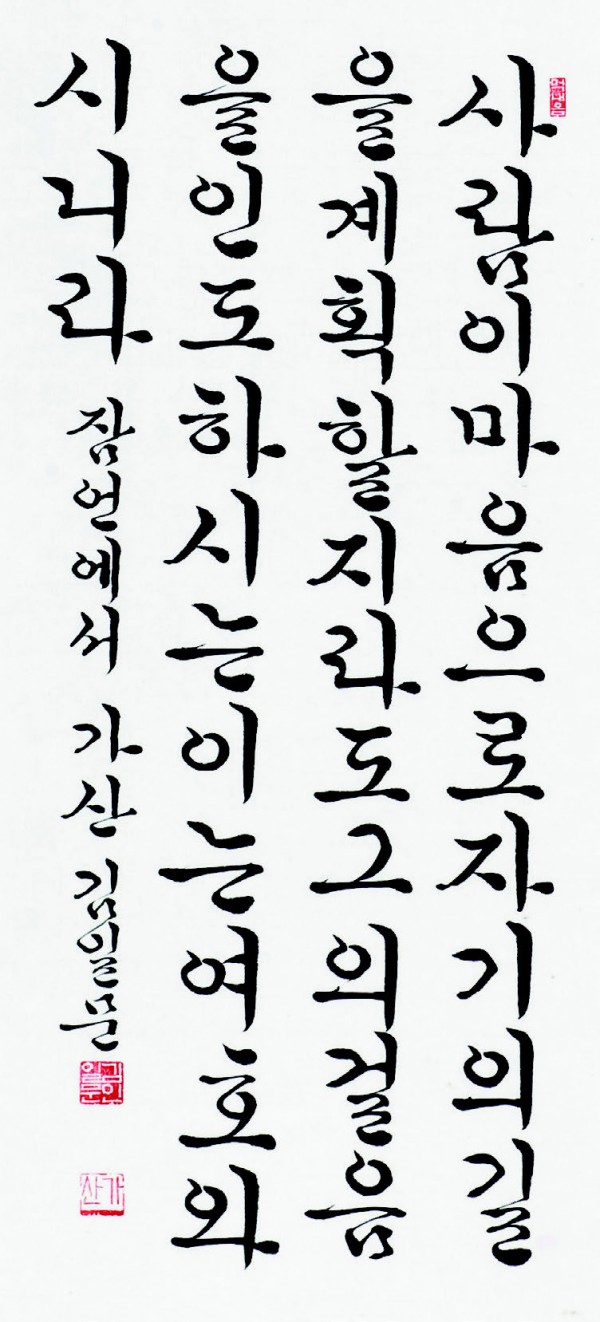 사람이마음으로자기의길
을계획할지라도그의걸음
을인도하시는이는여호와
시니라 잠언에서 가산 김일문
가산